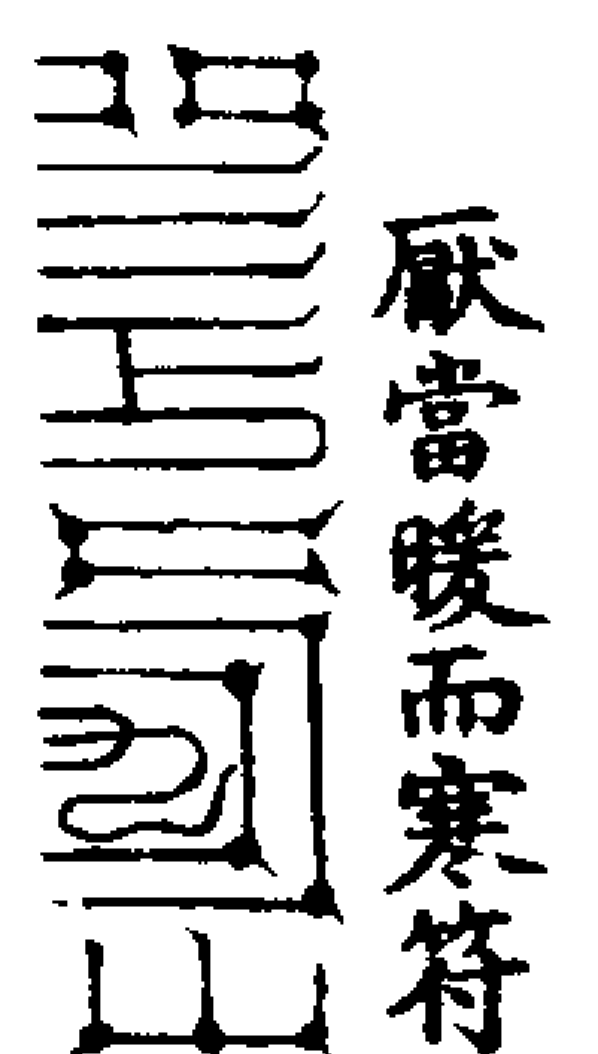 厭當暖而寒符